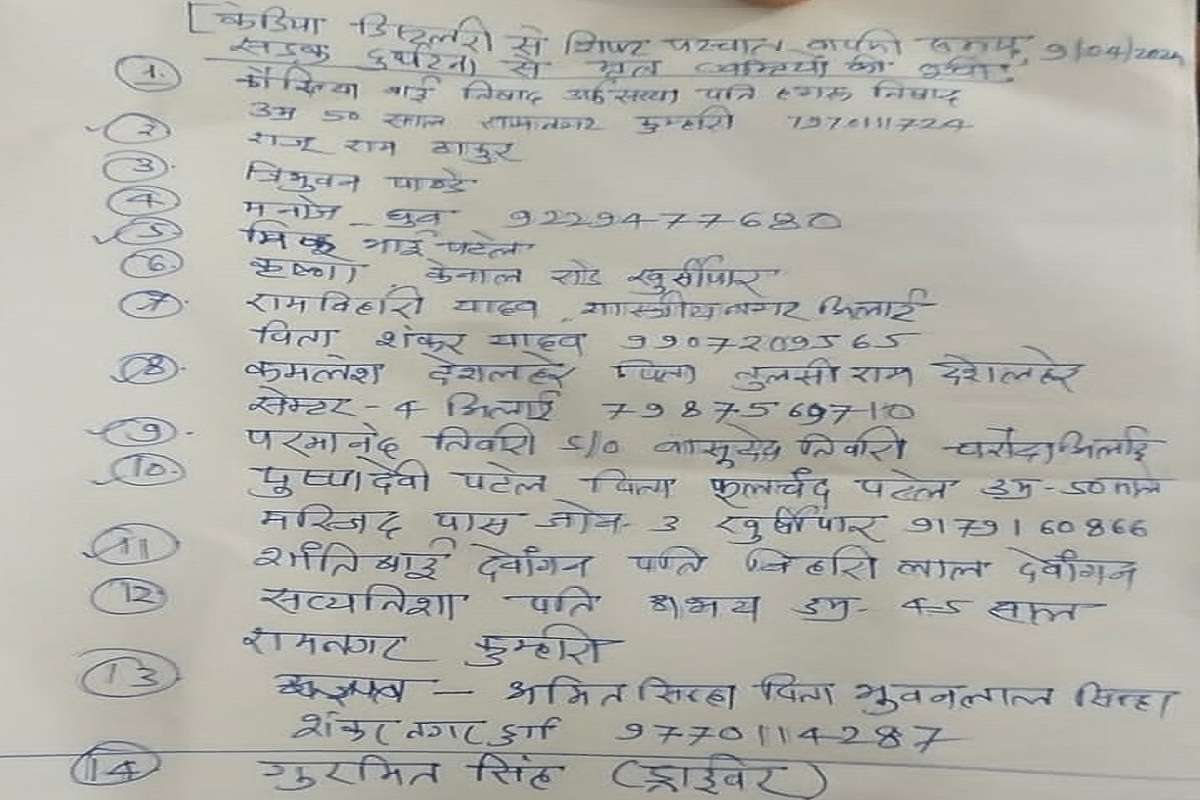 [केडिया डिस्टलरी से शिफ्ट पश्चात वापसी समय 9/04/2024
सड़क दुर्घटना से मृत व्यक्तियों की सूची
1. कौशिल्या बाई निषाद पति निषाद
उम्र 50 साल रामनगर कुम्हारी 7970111724
2 राजू राम ठाकुर
3. त्रिभुवन पाण्डे
4 मनोज ध्रुव 9229477680
5 मिंकू भाई पटेल
6. कृष्णा केनाल रोड खुर्सीपार
7. रामविहारी यादव शास्त्रीयनगर भिलाई
पिता शंकर यादव 9907209565
8. कमलेश देशलहरे पिता तुलसी राम देशलहरे
सेक्टर - 4 भिलाई
9. परमानंद तिवारी S/o वासुदेव तिवारी चरोदा भिलाई
10. पुष्पादेवी पटेल पिता फूलचंद पटेल उम्र - 50 साल
मस्जिद पास जोन 3 खुर्सीपार 9179160866
11 शांति बाई देवांगन पति बिहारी लाल देवांगन
12. सत्यनिशा पति अभय उम्र - 45 साल
रामनगर कुम्हारी
13 - अमित सिन्हा पिता भुवनलाल सिन्हा
शंकर नगर दुर्ग 97701114287
14 गुरमित सिंह (ड्राईवर)